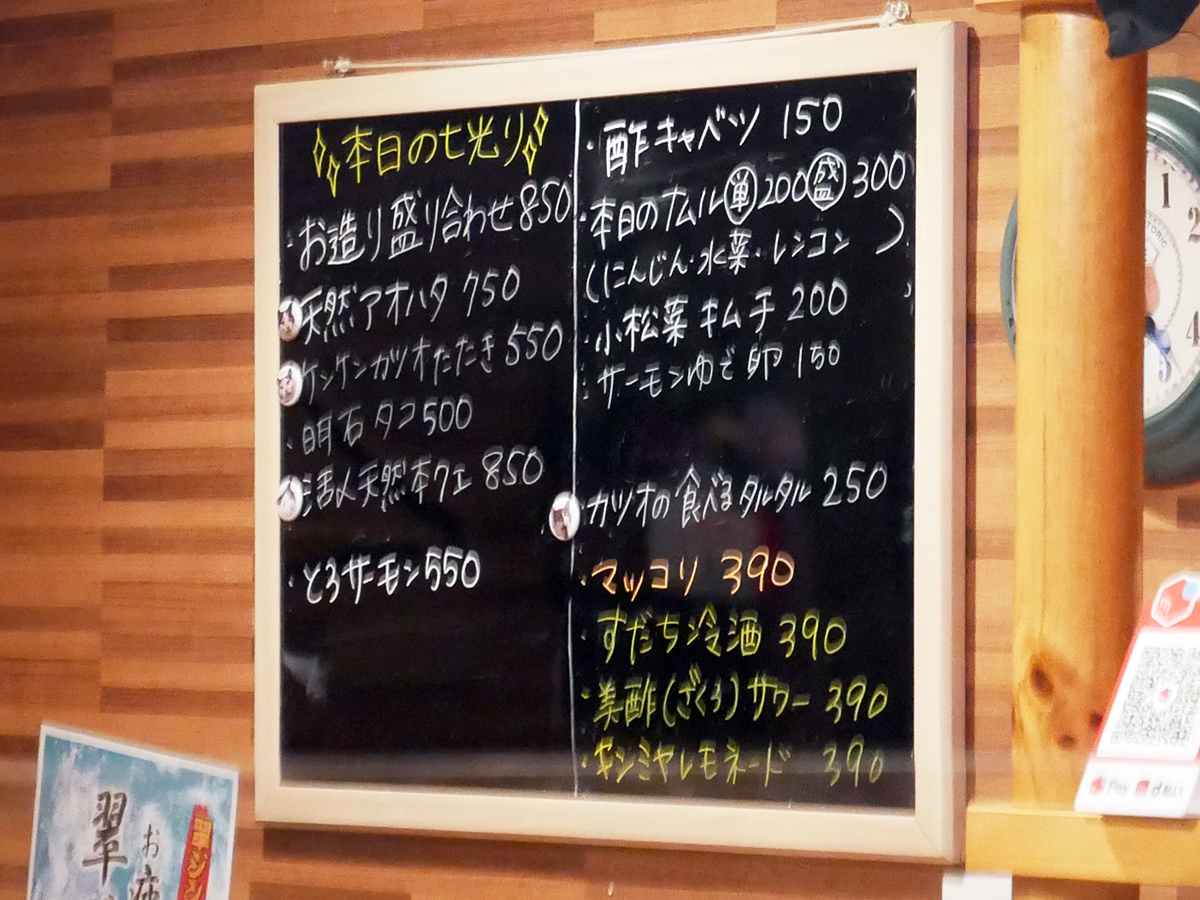 本日の七光り
・お造り盛り合わせ850
天然アオハタ 750
ケンケンガツオたたき 550
・明石タコ500
活〆天然本クエ 850
・とろサーモン550
・酢キャベツ 150
・本日のナムル㊥単200盛300
(にんじん・水菜・レンコン)
・小松菜キムチ 200
・サーモンゆで卵 150
カツオの食べるタルタル 250
・マッコリ 390
・すだち冷酒 390
・美酢(ざくろ)サワー 390
・キンミヤレモネード 390
翠
お疲
翠ジン
1
2
4
Pay
d払い